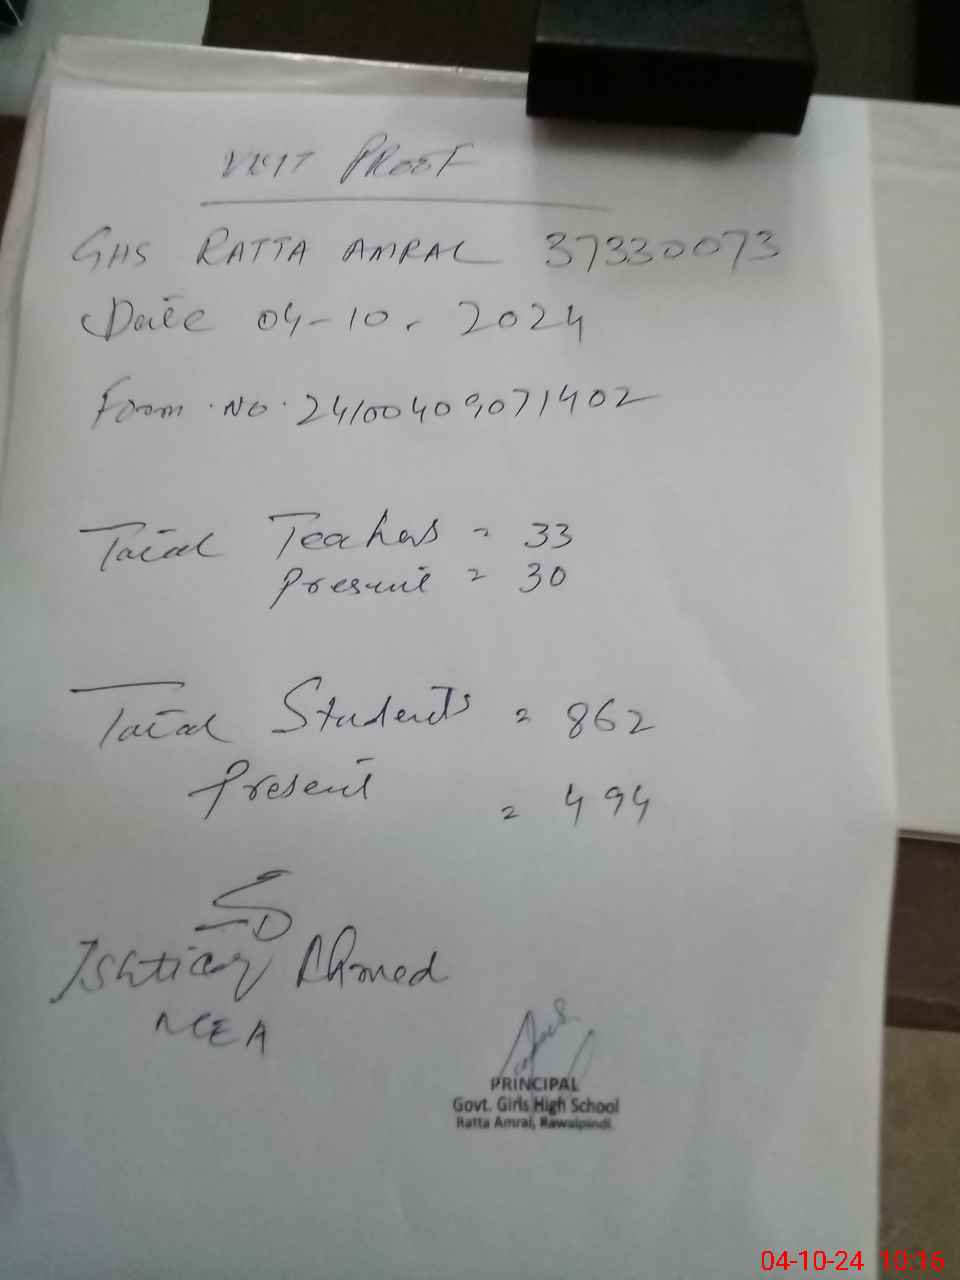 VISIT PROOF
GHS RATTA AMRAL 37330073
Date 04-10-2024
Form No. 24100409071402
Total Teachers = 33
Present = 30
Total Students = 862
Present
= 494
Ishtiaq Ahmed
MEA
PRINCIPAL
Govt. Girls High School
Ratta Amral, Rawalpindi.
04-10-24 10:16